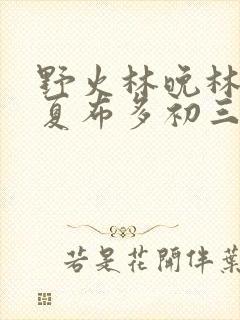 野火林晚林
夏布多初三
若是花開伴葉